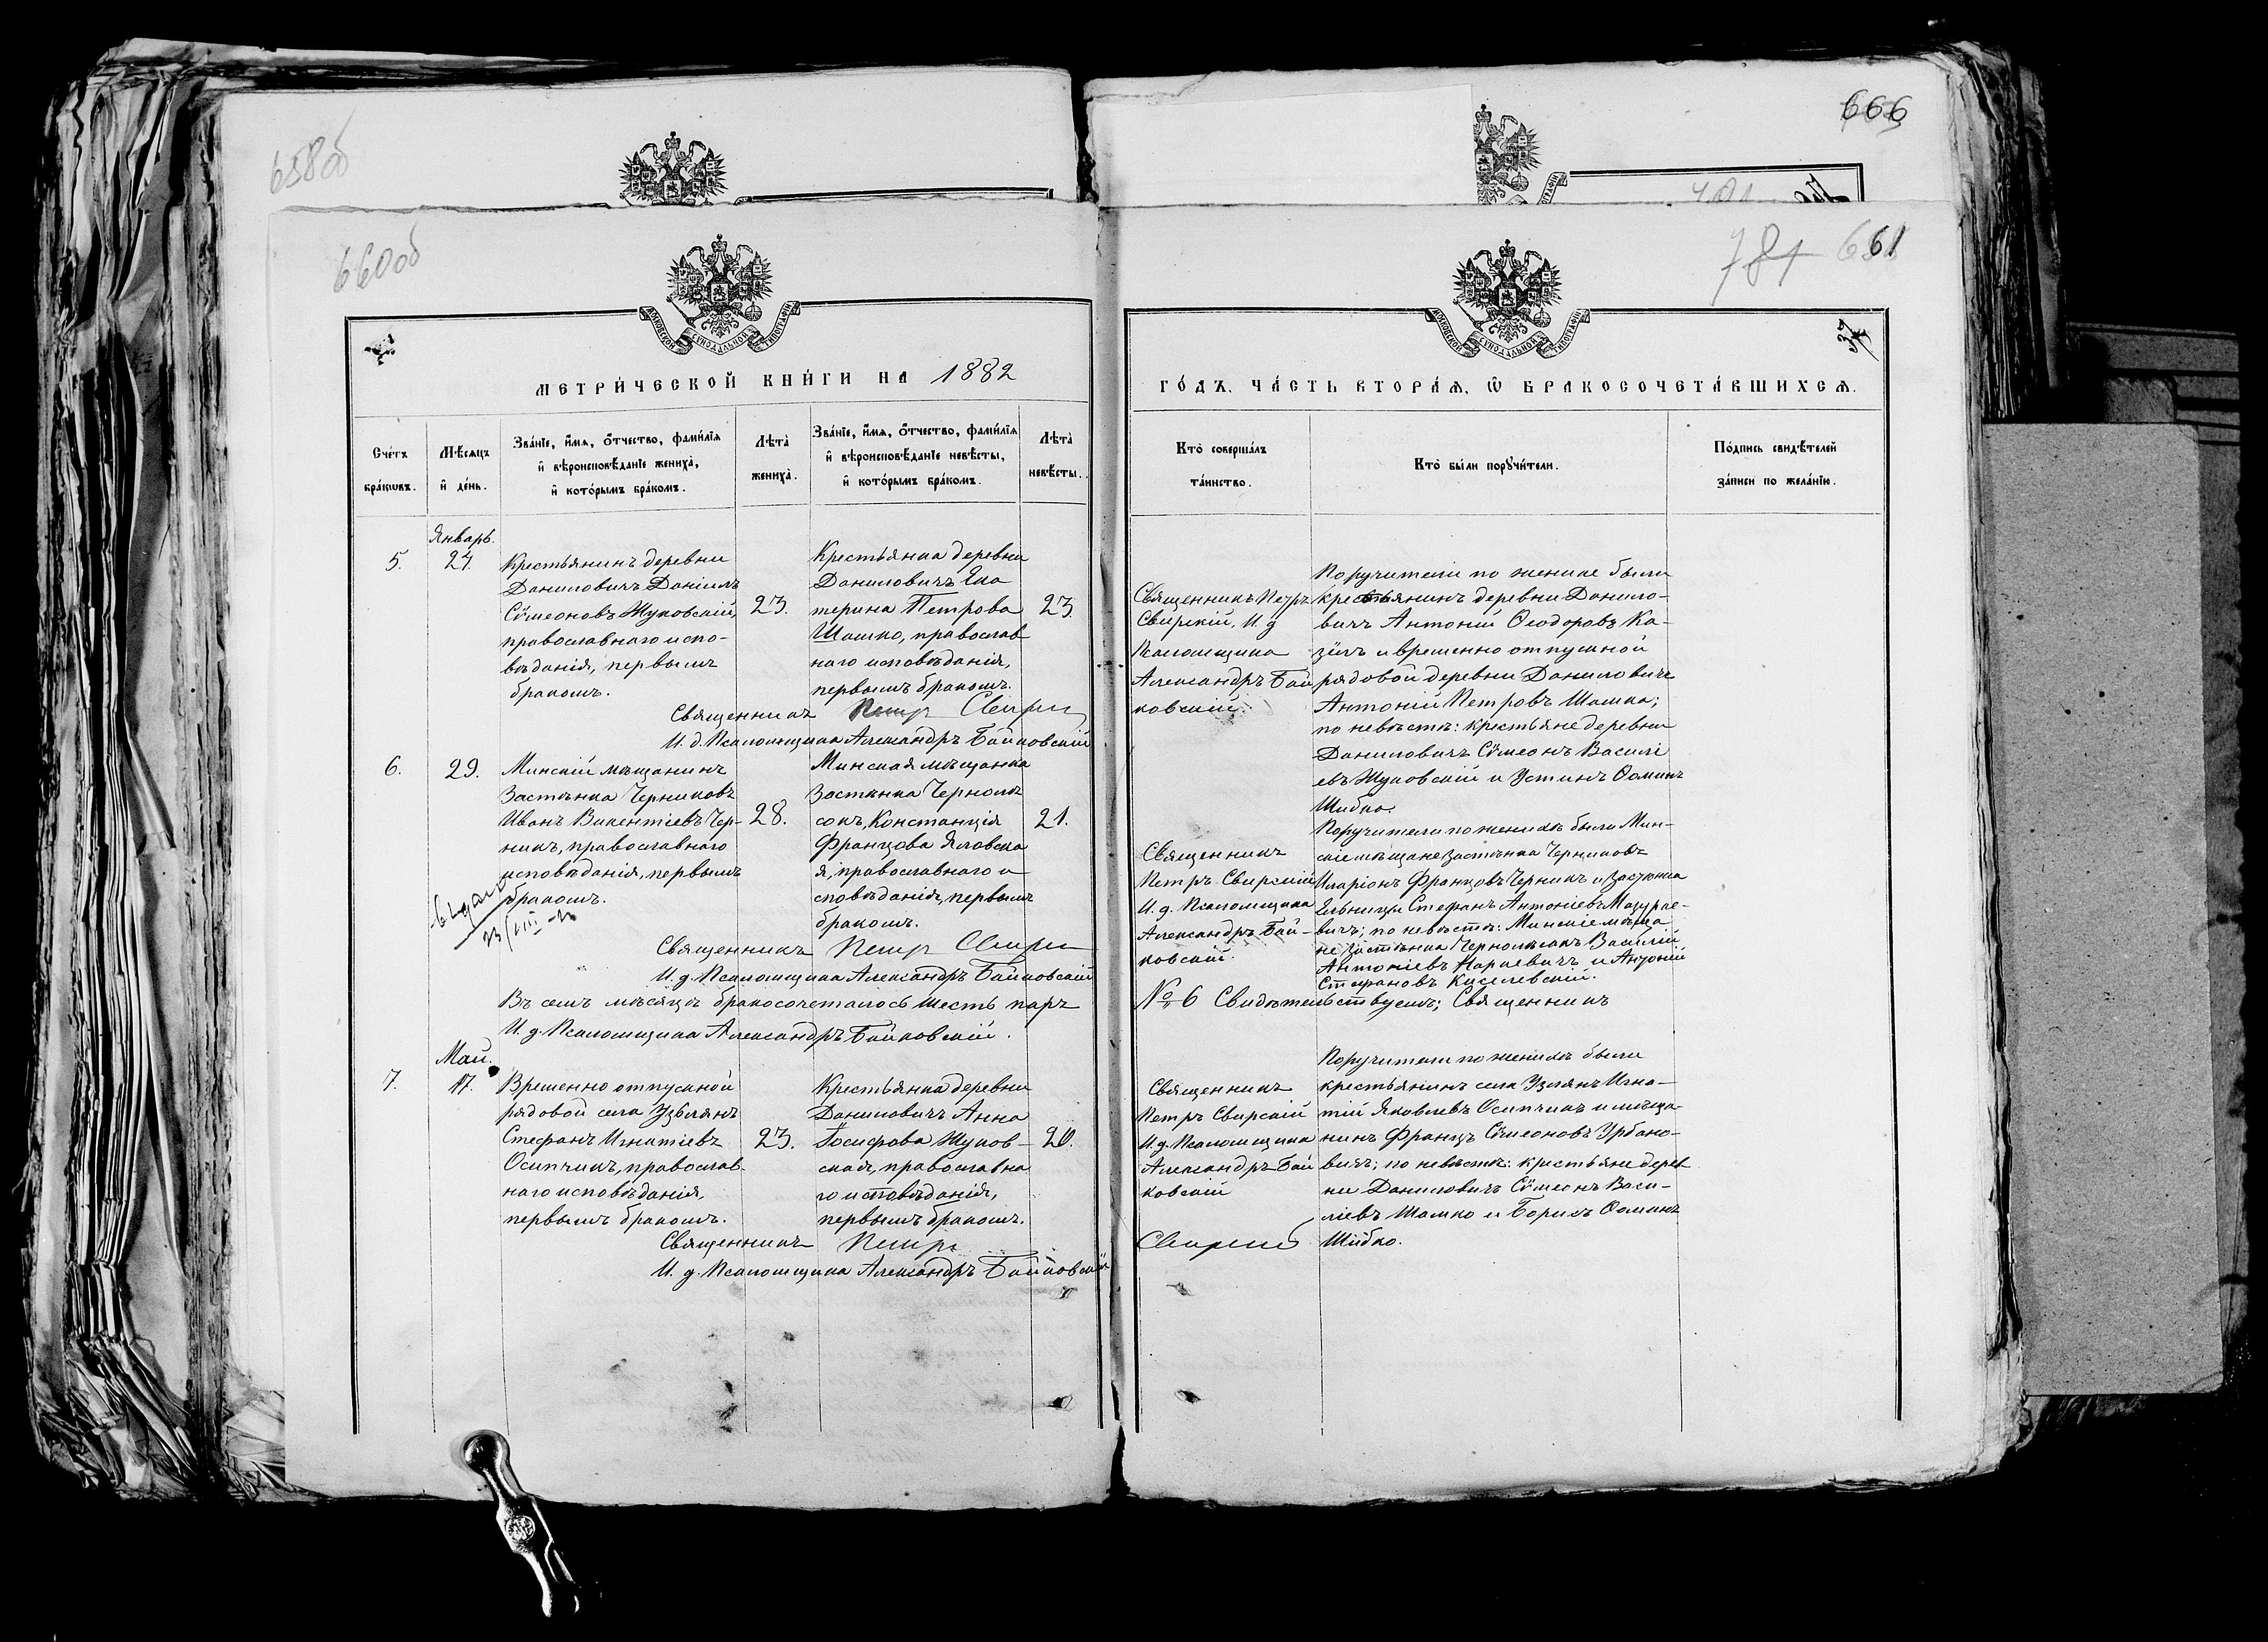 658об
666
660об
784 661
МЕТРИ́ЧЕСКОЙ КНИ́ГИ НА 1882
ГО́ДЪ. ЧА́СТЬ ВТОРА́Я, Ѿ БРАКОСОЧЕТА́ВШИХСЯ.
Сче́тъ бра́кѡвъ.
Мѣ́сяцъ и҆ де́нь.
Зва́нїе, и҆́мѧ, ѻ҆́тчество, фами́лїѧ и҆ вѣроисповѣ́данїе жениха̀, и҆ кото́рымъ бра́комъ.
Лѣта̀ жениха̀.
Зва́нїе, и҆́мѧ, ѻ҆́тчество, фами́лїѧ и҆ вѣроисповѣ́данїе невѣ́сты, и҆ кото́рымъ бра́комъ.
Лѣта̀ невѣ́сты.
Кто̀ соверша́лъ та́инство.
Кто̀ бы́ли порꙋчи́тели.
По́дпись свидѣ́телей за́писи по жела́нїю.
Январь.
5.
27.
Крестьянинъ деревни
Даниловичъ Даніилъ
Сѵмеоновъ Жуковскій,
православнаго испо-
вѣданія, первымъ
бракомъ.
23.
Крестьянка деревни
Даниловичъ Ека
терина Петрова
Шашко, православ
наго исповѣданія,
первымъ бракомъ.
23.
Священникъ Петръ
Свирскій, И. д
Псаломщика
Александръ Бай
ковскій.
Поручители по жених были
крестьянинъ деревни Данило-
вичъ Антоній Ѳеодоровъ Ка-
зіолъ и временно отпускной
рядовой деревни Даниловичъ
Антоній Петровъ Шашко;
по невѣстѣ: крестьяне деревни
Даниловичъ Сѵмеонъ Василі
евъ Жуковскій и Устинъ Ѳоминъ
Шибко.
Священникъ Петр Свирскі
И. д. Псаломщика Александръ Байковскій
6.
29.
Минскій мѣщанинъ
Застѣнка Черниковъ
Иванъ Викентіевъ Чер-
никъ, православнаго
исповѣданія, первымъ
бракомъ.
28.
Минская мѣщанка
Застѣнка Чернолѣ
сокъ, Констанція
Францова Яловска
я, православнаго и
сповѣданія, первымъ
бракомъ.
21.
Священникъ
Петръ Свирскій
И. д. Псаломщика
Александръ Бай-
ковскій.
Поручители по женихѣ были Мин-
скіе мѣщане застѣнка Черниковъ
Иларіонъ Францовъ Черникъ и застѣнка
Ельницы Стефанъ Антоніевъ Мазурке-
вичъ; по невѣстѣ: Минскіе мѣща
не Застѣнка Чернолѣсокъ Василій
Антоніевъ Карпевичъ и Антоній
Стефановъ Киселевскій.
выдано
23/VIII
Священникъ Петр Свирскі
И. д. Псаломщика Александръ Байковскій
Въ семъ мѣсяцѣ бракосочеталось шесть паръ
№ 6 Свидѣтельствуемъ; Священникъ
И. д. Псаломщика Александръ Байковскій.
Май.
7.
17.
Временно отпускной
рядовой села Узлянъ
Стефанъ Игнатіевъ
Осипчикъ, православ-
наго исповѣданія,
первымъ бракомъ.
23.
Крестьянка деревни
Даниловичъ Анна
Іосифова Жуков-
ская, православна
го исповѣданія,
первымъ бракомъ.
20.
Священникъ
Петръ Свирскій
И. д. Псаломщика
Александръ Бай
ковскій
Поручители по женихѣ были
крестьянинъ села Узлянъ Игна-
тій Яковлевъ Осипчикъ и мѣща-
нинъ Францъ Сѵмеоновъ Урбано-
вичъ; по невѣстѣ: крестьяне дерев
ни Даниловичъ Сѵмеонъ Васи-
ліевъ Шашко и Борисъ Ѳоминъ
Шибко.
Священникъ Петръ Свирскій
И. д. Псаломщика Александръ Байковскій